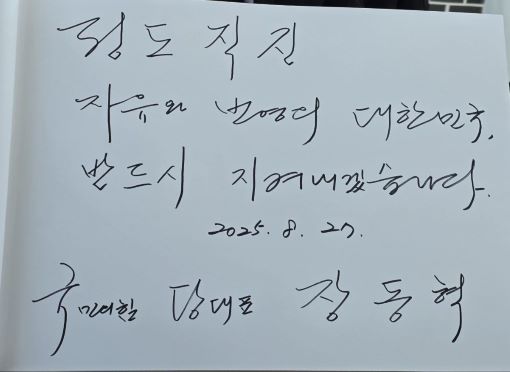 정도직진
자유와 번영의 대한민국,
반드시 지켜내겠습니다.
2025. 8. 27.
국민의힘 당대표 장동혁